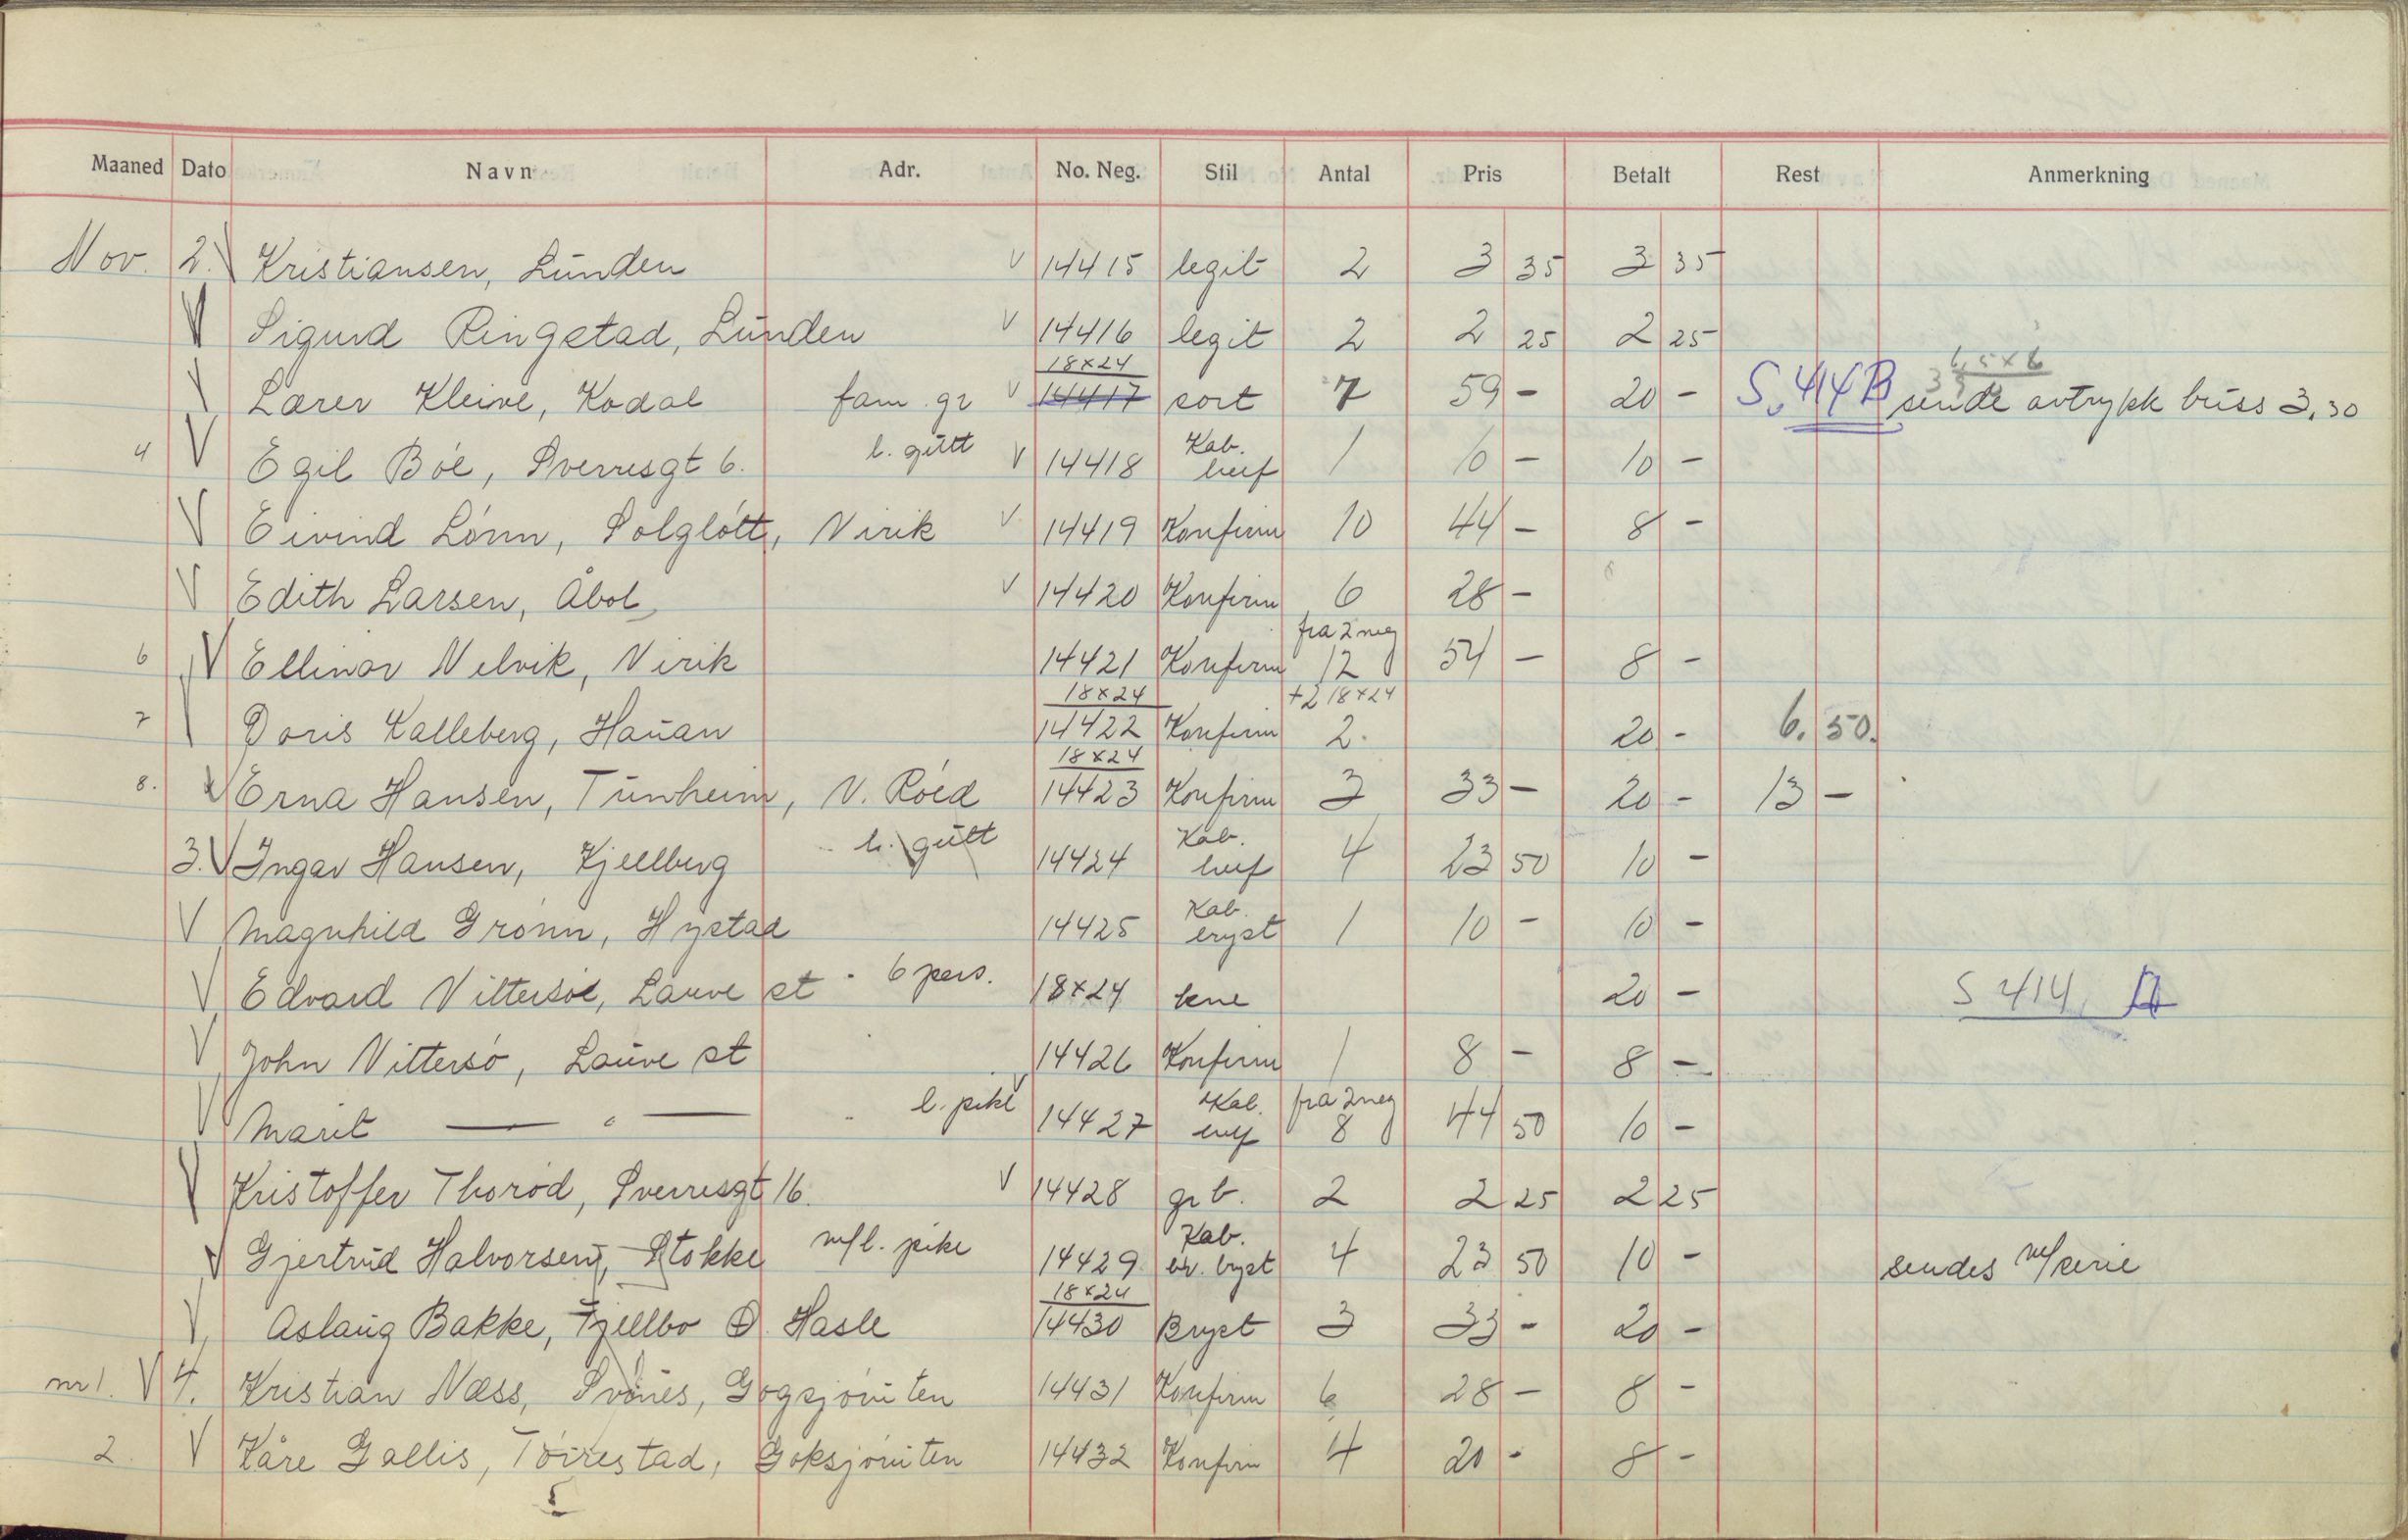 Maaned Dato Navn Adr. No. Neg. Stil Antal Pris Betalt Rest Anmerkning
Nov. 2. Kristiansen, Lunden V 14415 legit 2 3 35 3 35
V Sigurd Ringstad, Lunden V 14416 legit 2 2 25 2 25
18×24 6,5×6
Lærer Kleive, Kodal fam. gr V 14417 sort 7 59 - 20 - S. 414 B sende avtrykk buss 3,30
4 V Egil Bøe, Sverresgt 6. l. gutt V 14418 Kab. 1 10 - 10 -
V Eivind Lønn, Solgløtt, Virik V 14419 Konfirm 10 44 - 8 -
V Edith Larsen, Åbol V 14420 Konfirm 6 28 -
fra 2 neg
6 V Ellinor Nelvik, Virik 14421 Konfirm 12 54 - 8 -
18×24 +2 18×24
7 Doris Kalleberg, Hauan 14422 Konfirm 2. 20 - 6. 50.
18×24
8. V Erna Hansen, Tunheim, N. Røed 14423 Konfirm 3 33 - 20 - 13 -
3. V Ingar Hansen, Kjellberg l. gutt 14424 Kab. 4 23 50 10 -
V Magnhild Grønn, Hystad 14425 Kab. bryst 1 10 - 10 -
V Edvard Vittersøe, Lauve st 6 pers. 18×24 kne 20 - S 414. A
V John Vittersø, Lauve st 14426 Konfirm 1 8 - 8 -
fra 2 neg
V Marit — " — l. pike V 14427 Kab. 8 44 50 10 -
V Kristoffer Thorød, Sverresgt 16. V 14428 gr b. 2 2 25 2 25
V Gjertrud Halvorsen, Stokke m/l. pike 14429 Kab. br. bryst 4 23 50 10 - sendes m/serie
18×24
V Aslaug Bakke, Fjellbo Hasle 14430 Bryst 3 33 - 20 -
nr 1. V 4. Kristian Næss, Gogsjøruten 14431 Konfirm 6 28 - 8 -
2. V Kåre Gallis, Tørrestad, Goksjøruten 14432 Konfirm 4 20 - 8 -